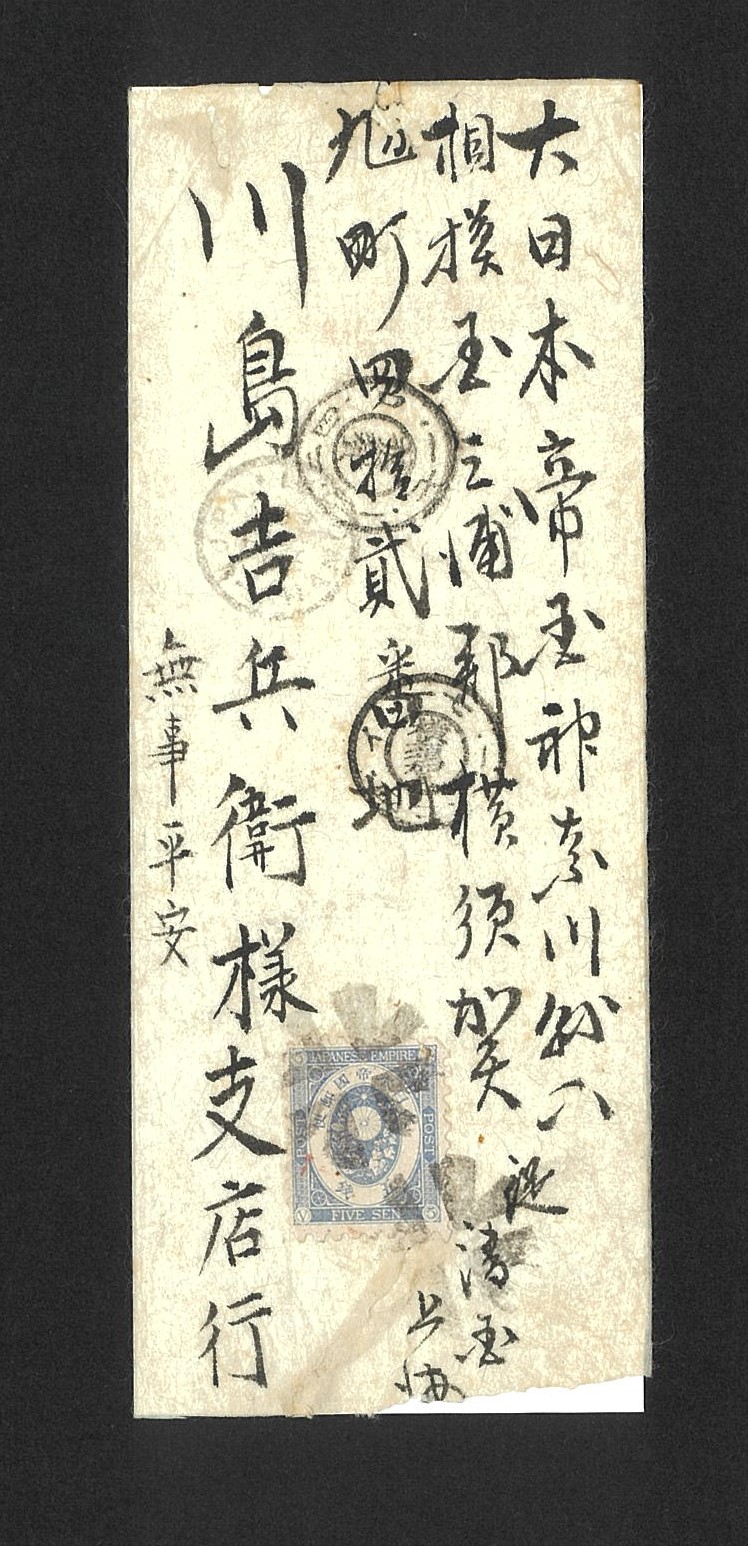 大日本帝国神奈川縣下
相模国三浦郡横須賀
旭町四拾貳番地
川島吉兵衛様支店行
無事平安
従
清国
上海
JAPANESE EMPIRE
POST
POST
FIVE SEN
5
5
V